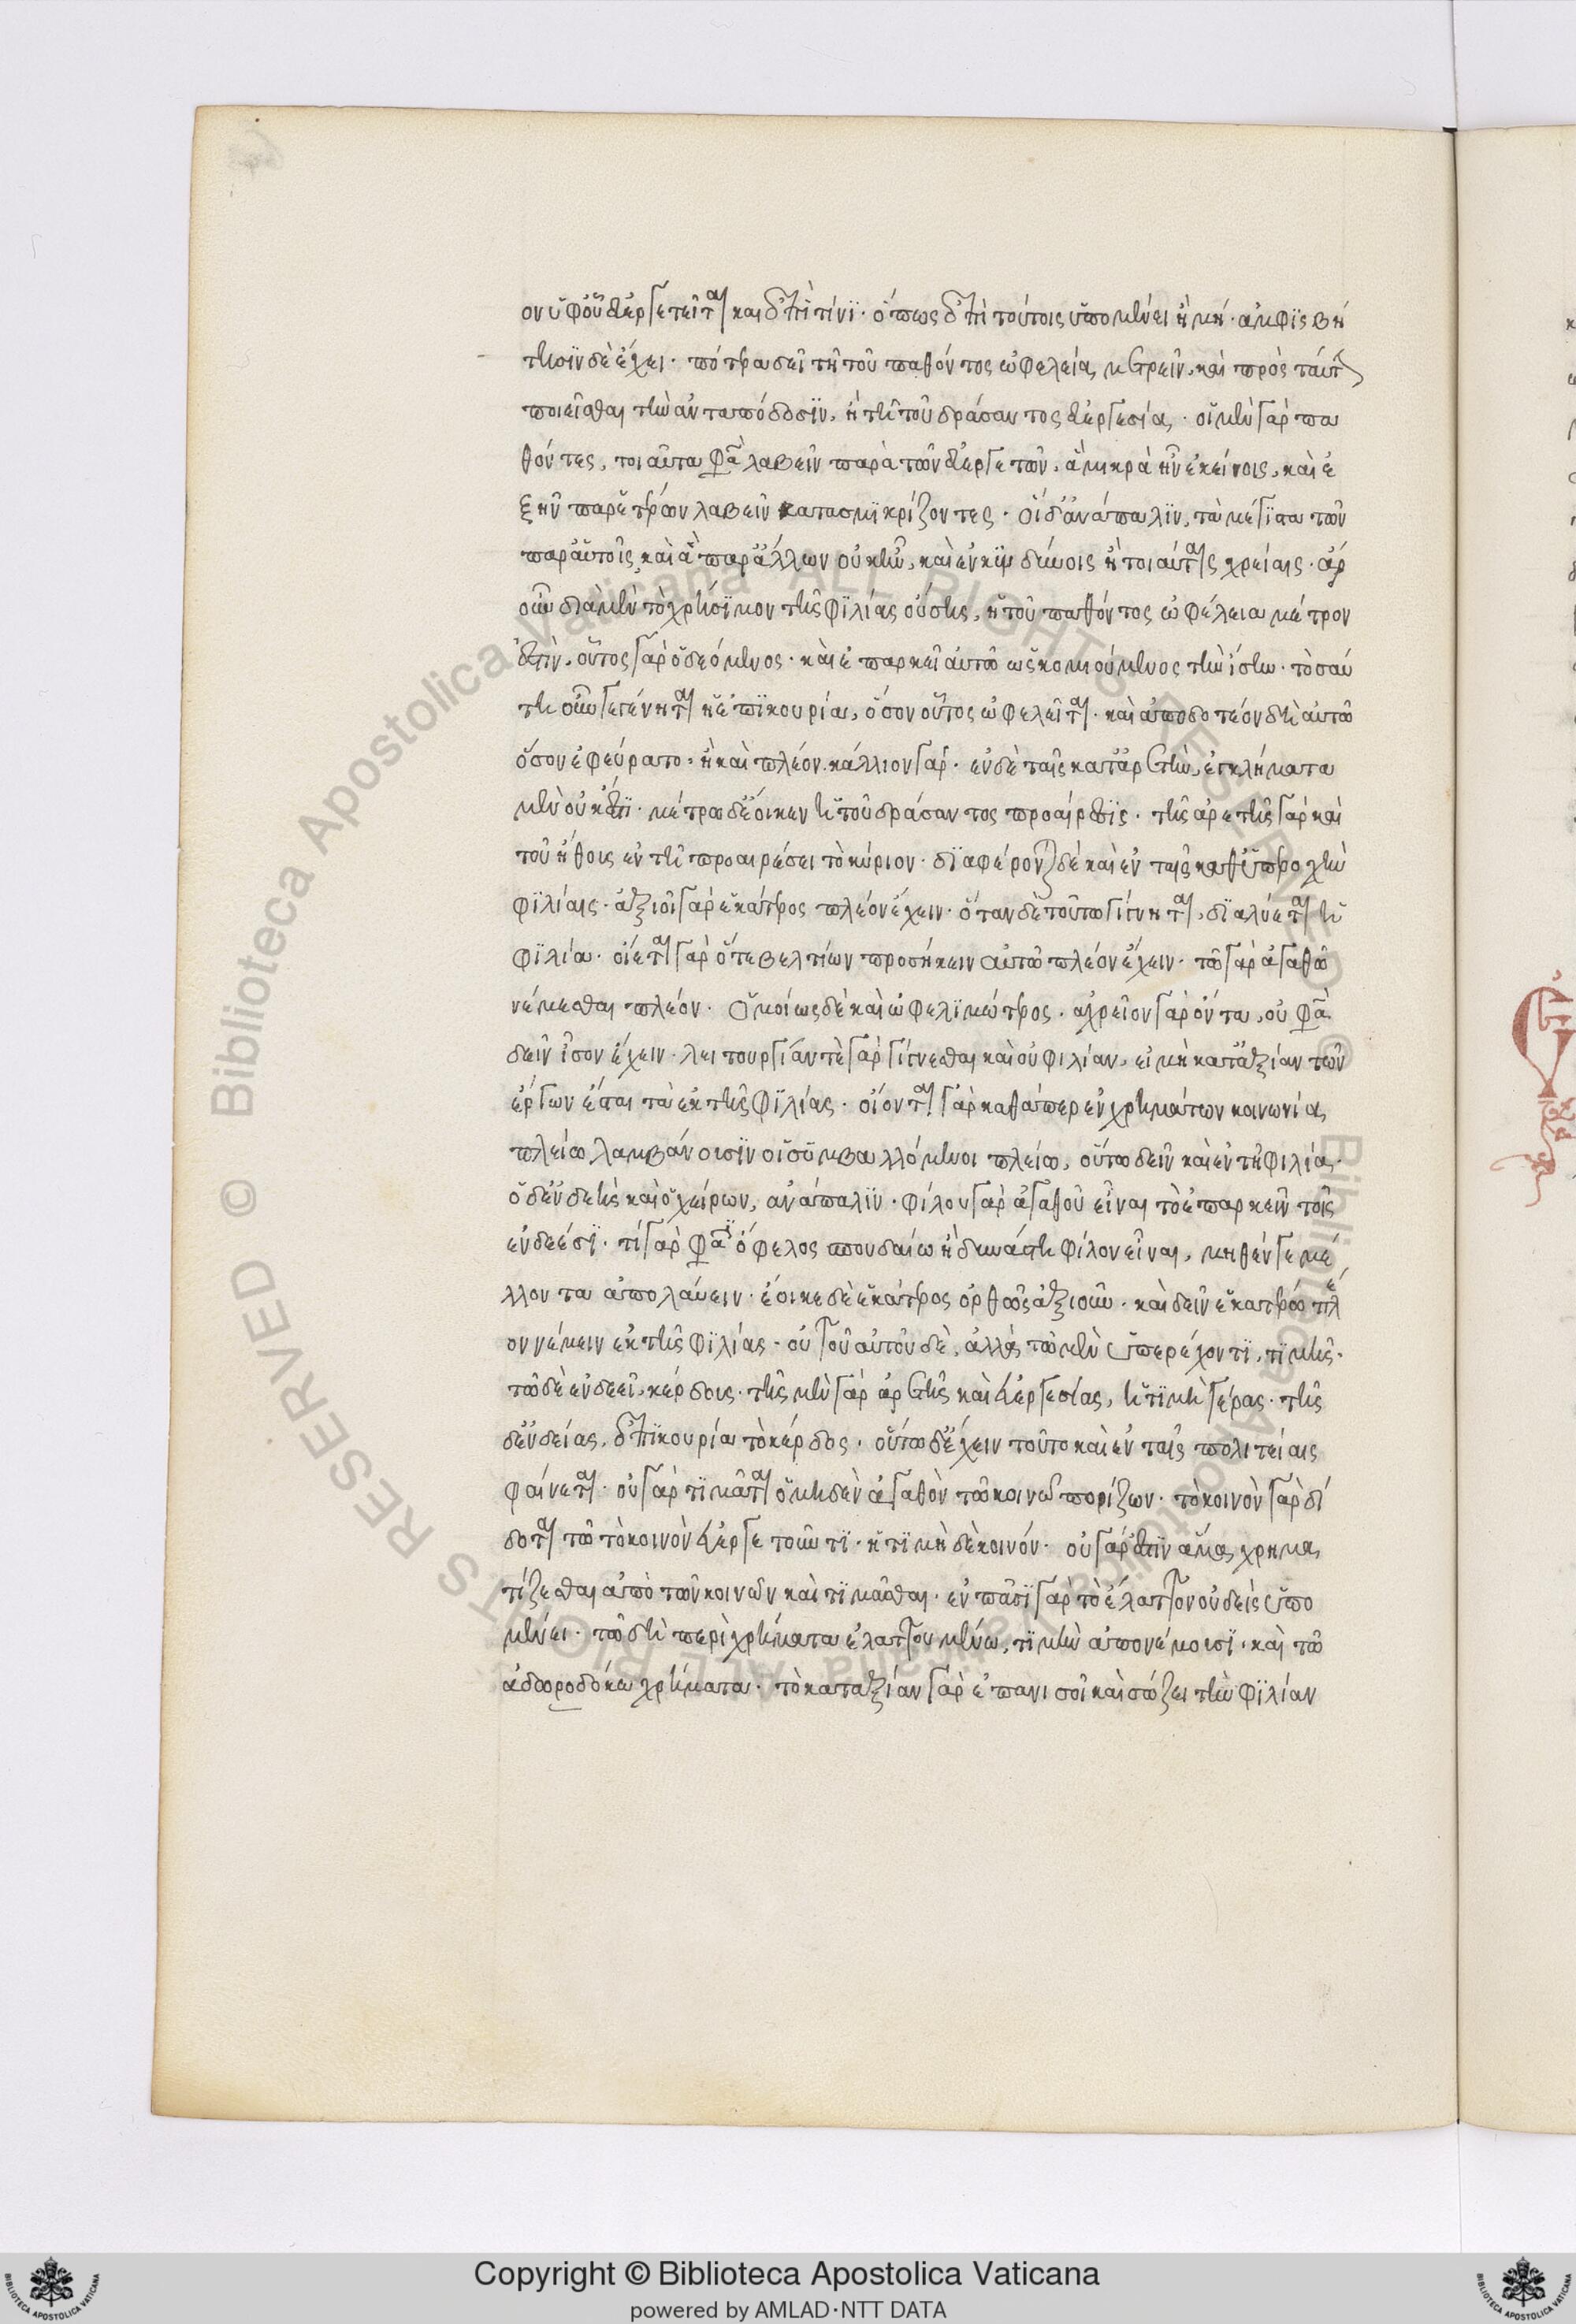 ον ὑφ οὗ εὐεργετεῖται καὶ ἐπὶ τίνι· ὅπως ἐπὶ τούτοις ὑπομένει ἢ μή· ἀμφισβή
τησιν δὲ ἔχει· πότερα δεῖ τῇ τοῦ παθόντος ὠφελείᾳ μετρεῖν, καὶ πρὸς ταύτην
ποιεῖσθαι τὴν ἀνταπόδοσιν, ἢ τῇ τοῦ δράσαντος εὐεργεσίᾳ· οἱ μὲν γὰρ πα
θόντες, τοιαῦτα φασὶ λαβεῖν παρὰ τῶν εὐεργετῶν, ἃ μικρὰ ἦν ἐκείνοις, καὶ ἐ
ξῆν παρ ἑτέρων λαβεῖν κατασμικρίζοντες· οἱ δ ἀνάπαλιν, τὰ μέγιστα τῶν
παρ αὐτοῖς, καὶ ἃ παρ ἄλλων οὐκ ἦν, καὶ ἐν κινδύνοις ἢ τοιαύταις χρείαις· ἆρ
οὖν διὰ μὲν τὸ χρήσιμον τῆς φιλίας οὔσης, ἡ τοῦ παθόντος ὠφέλεια μέτρον
ἐστὶν, οὗτος γὰρ ὁ δεόμενος· καὶ ἐπαρκεῖ αὐτῷ ὡς κομιούμενος τὴν ἴσην· τοσαύ
τη οὖν γεγένηται ἡ ἐπικουρία, ὅσον οὗτος ὠφελεῖται· καὶ ἀποδοτέον δὴ αὐτῷ
ὅσον ἐφεύρατο· ἢ καὶ πλέον. κάλλιον γάρ· ἐν δὲ ταῖς κατ ἀρετὴν, ἐγκλήματα
μὲν οὐκ ἔστι· μέτρῳ δ ἔοικεν ἡ τοῦ δράσαντος προαίρεσις· τῆς ἀρετῆς γὰρ καὶ
τοῦ ἤθους ἐν τῇ προαιρέσει τὸ κύριον· διαφέρονται δὲ καὶ ἐν ταῖς καθ ὑπεροχὴν
φιλίαις· ἀξιοῖ γὰρ ἑκάτερος πλέον ἔχειν· ὅταν δὲ τοῦτο γίγνηται, διαλύεται ἡ
φιλία· οἴεται γὰρ ὅ τε βελτίων προσήκειν αὐτῷ πλέον ἔχειν· τῷ γὰρ ἀγαθῷ
νέμεσθαι πλέον· ὁμοίως δὲ καὶ ὠφελιμώτερος· ἀχρεῖον γὰρ ὄντα, οὔ φασὶ
δεῖν ἴσον ἔχειν· λειτουργίαν τὲ γὰρ γίγνεσθαι καὶ οὐ φιλίαν, εἰ μὴ κατ ἀξίαν τῶν
ἔργων ἔσται τὰ ἐκ τῆς φιλίας· οἴονται γὰρ καθάπερ ἐν χρημάτων κοινωνίᾳ
πλείω λαμβάνουσιν οἱ συμβαλλόμενοι πλείω, οὕτω δεῖν καὶ ἐν τῇ φιλίᾳ·
ὁ δ ἐνδεὴς καὶ ὁ χείρων, ἀνάπαλιν· φίλου γὰρ ἀγαθοῦ εἶναι τὸ ἐπαρκεῖν τοῖς
ἐνδεέσι· τί γὰρ φασὶ ὄφελος σπουδαίω ἢ δυνάστη φίλον εἶναι, μηθέν γε μέ
λλοντα ἀπολαύειν· ἔοικε δὲ ἑκάτερος ὀρθῶς ἀξιοῦν· καὶ δεῖν ἑκατέρῳ πλέ
ον νέμειν ἐκ τῆς φιλίας· οὐ τοῦ αὐτοῦ δὲ, ἀλλὰ τῷ μὲν ὑπερέχοντι, τιμῆς·
τῷ δὲ ἐνδεεῖ, κέρδους· τῆς μὲν γὰρ ἀρετῆς καὶ εὐεργεσίας, ἡ τιμὴ γέρας· τῆς
δ ἐνδείας, ἐπικουρία τὸ κέρδος· οὕτω δ ἔχειν τοῦτο καὶ ἐν ταῖς πολιτείαις
φαίνεται· οὐ γὰρ τιμᾶται ὁ μηδὲν ἀγαθὸν τῷ κοινῷ πορίζων· τὸ κοινὸν γὰρ δί
δοται τῷ τὸ κοινὸν εὐεργετοῦντι· ἡ τιμὴ δὲ κοινόν· οὐ γὰρ ἔστιν ἅμα χρημα
τίζεσθαι ἀπὸ τῶν κοινῶν καὶ τιμᾶσθαι· ἐν πᾶσι γὰρ τὸ ἔλαττον οὐδεὶς ὑπο
μένει· τῷ δὴ περὶ χρήματα ἐλαττουμένω, τιμὴν ἀπονέμουσι· καὶ τῷ
ἀδωροδόκω χρήματα· τὸ κατ ἀξίαν γὰρ ἐπανισοῖ καὶ σώζει τὴν φιλίαν